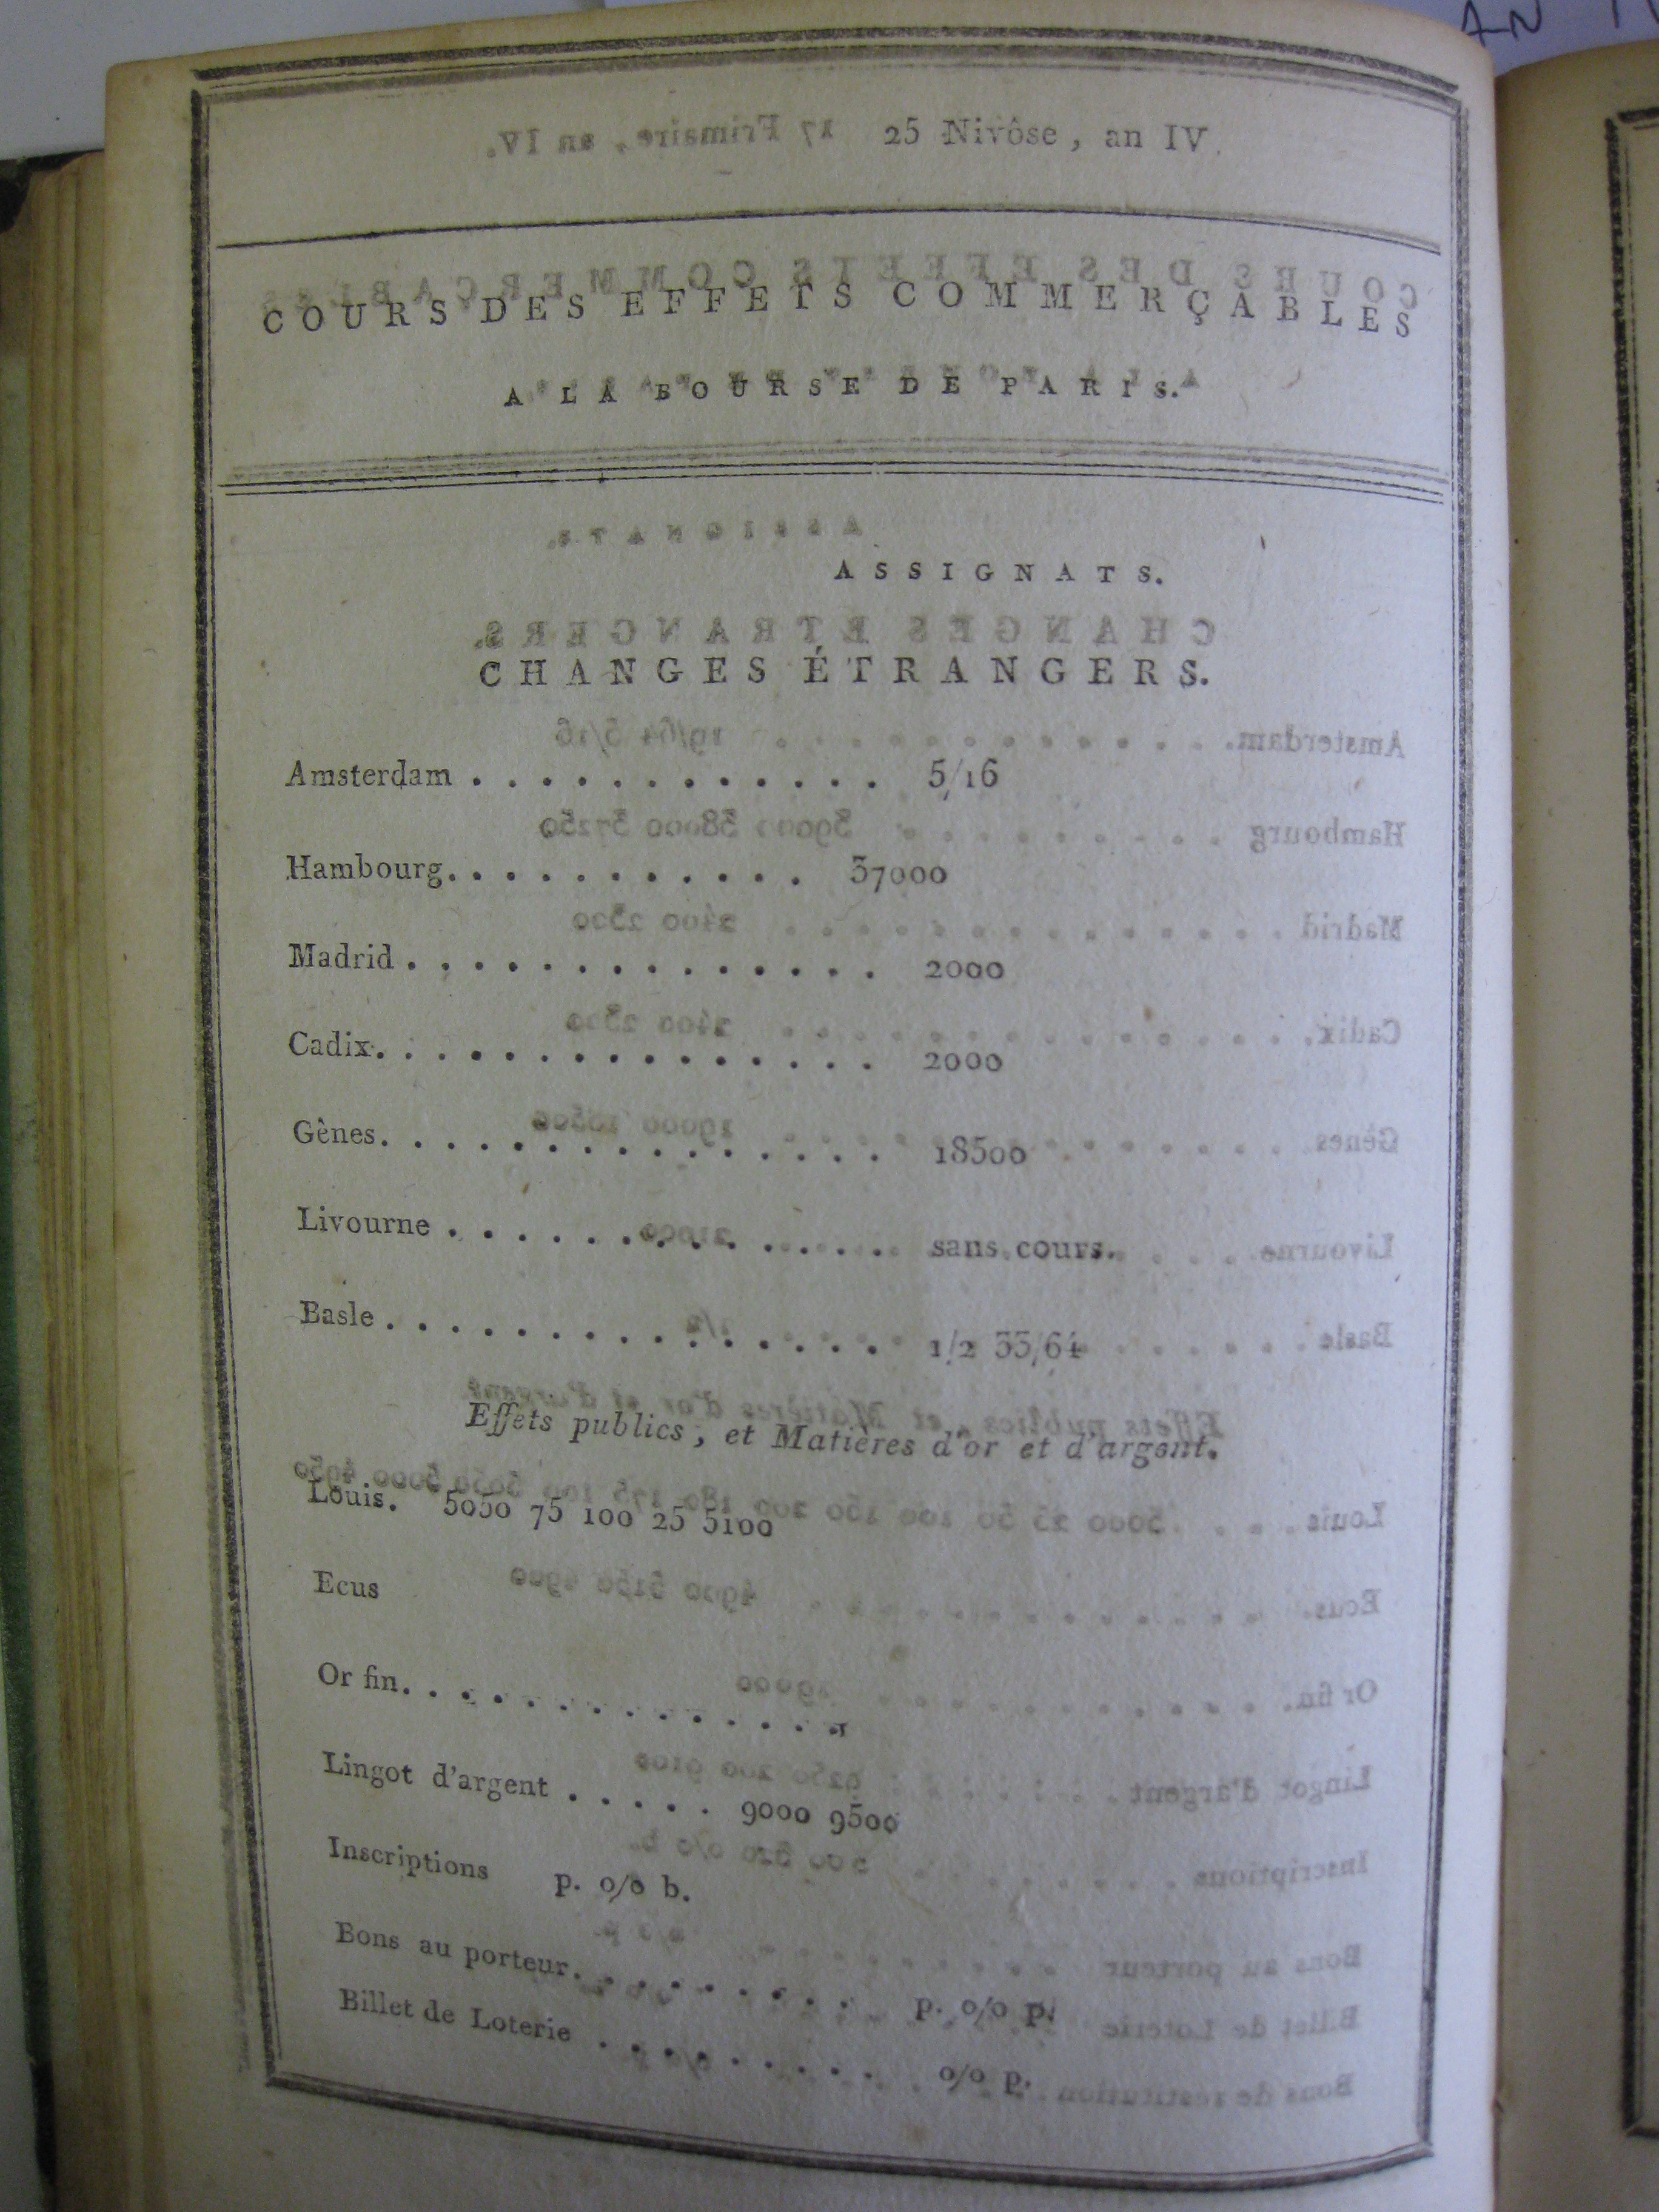 AN
25 Nivôse, an IV.
COURS DES EFFETS COMMERÇABLES
A LA BOURSE DE PARIS.
ASSIGNATS.
CHANGES ÉTRANGERS.
Amsterdam . . . . . . . . . . . . 5/16
Hambourg. . . . . . . . . . . . 37000
Madrid . . . . . . . . . . . . . . 2000
Cadix. . . . . . . . . . . . . . . . 2000
Gènes. . . . . . . . . . . . . . . . 18500
Livourne . . . . . . . . . . . . . . sans cours.
Basle . . . . . . . . . . . . . . . . 1/2 33/64
Effets publics, et Matières d'or et d'argent.
Louis. 5050 75 100 25 5100
Ecus
Or fin. . . . . . . . . . . . . .
Lingot d'argent . . . . . 9000 9500
Inscriptions p. o/o b.
Bons au porteur. . . . . . . . . p. o/o p.
Billet de Loterie . . . . . . . . . o/o p.